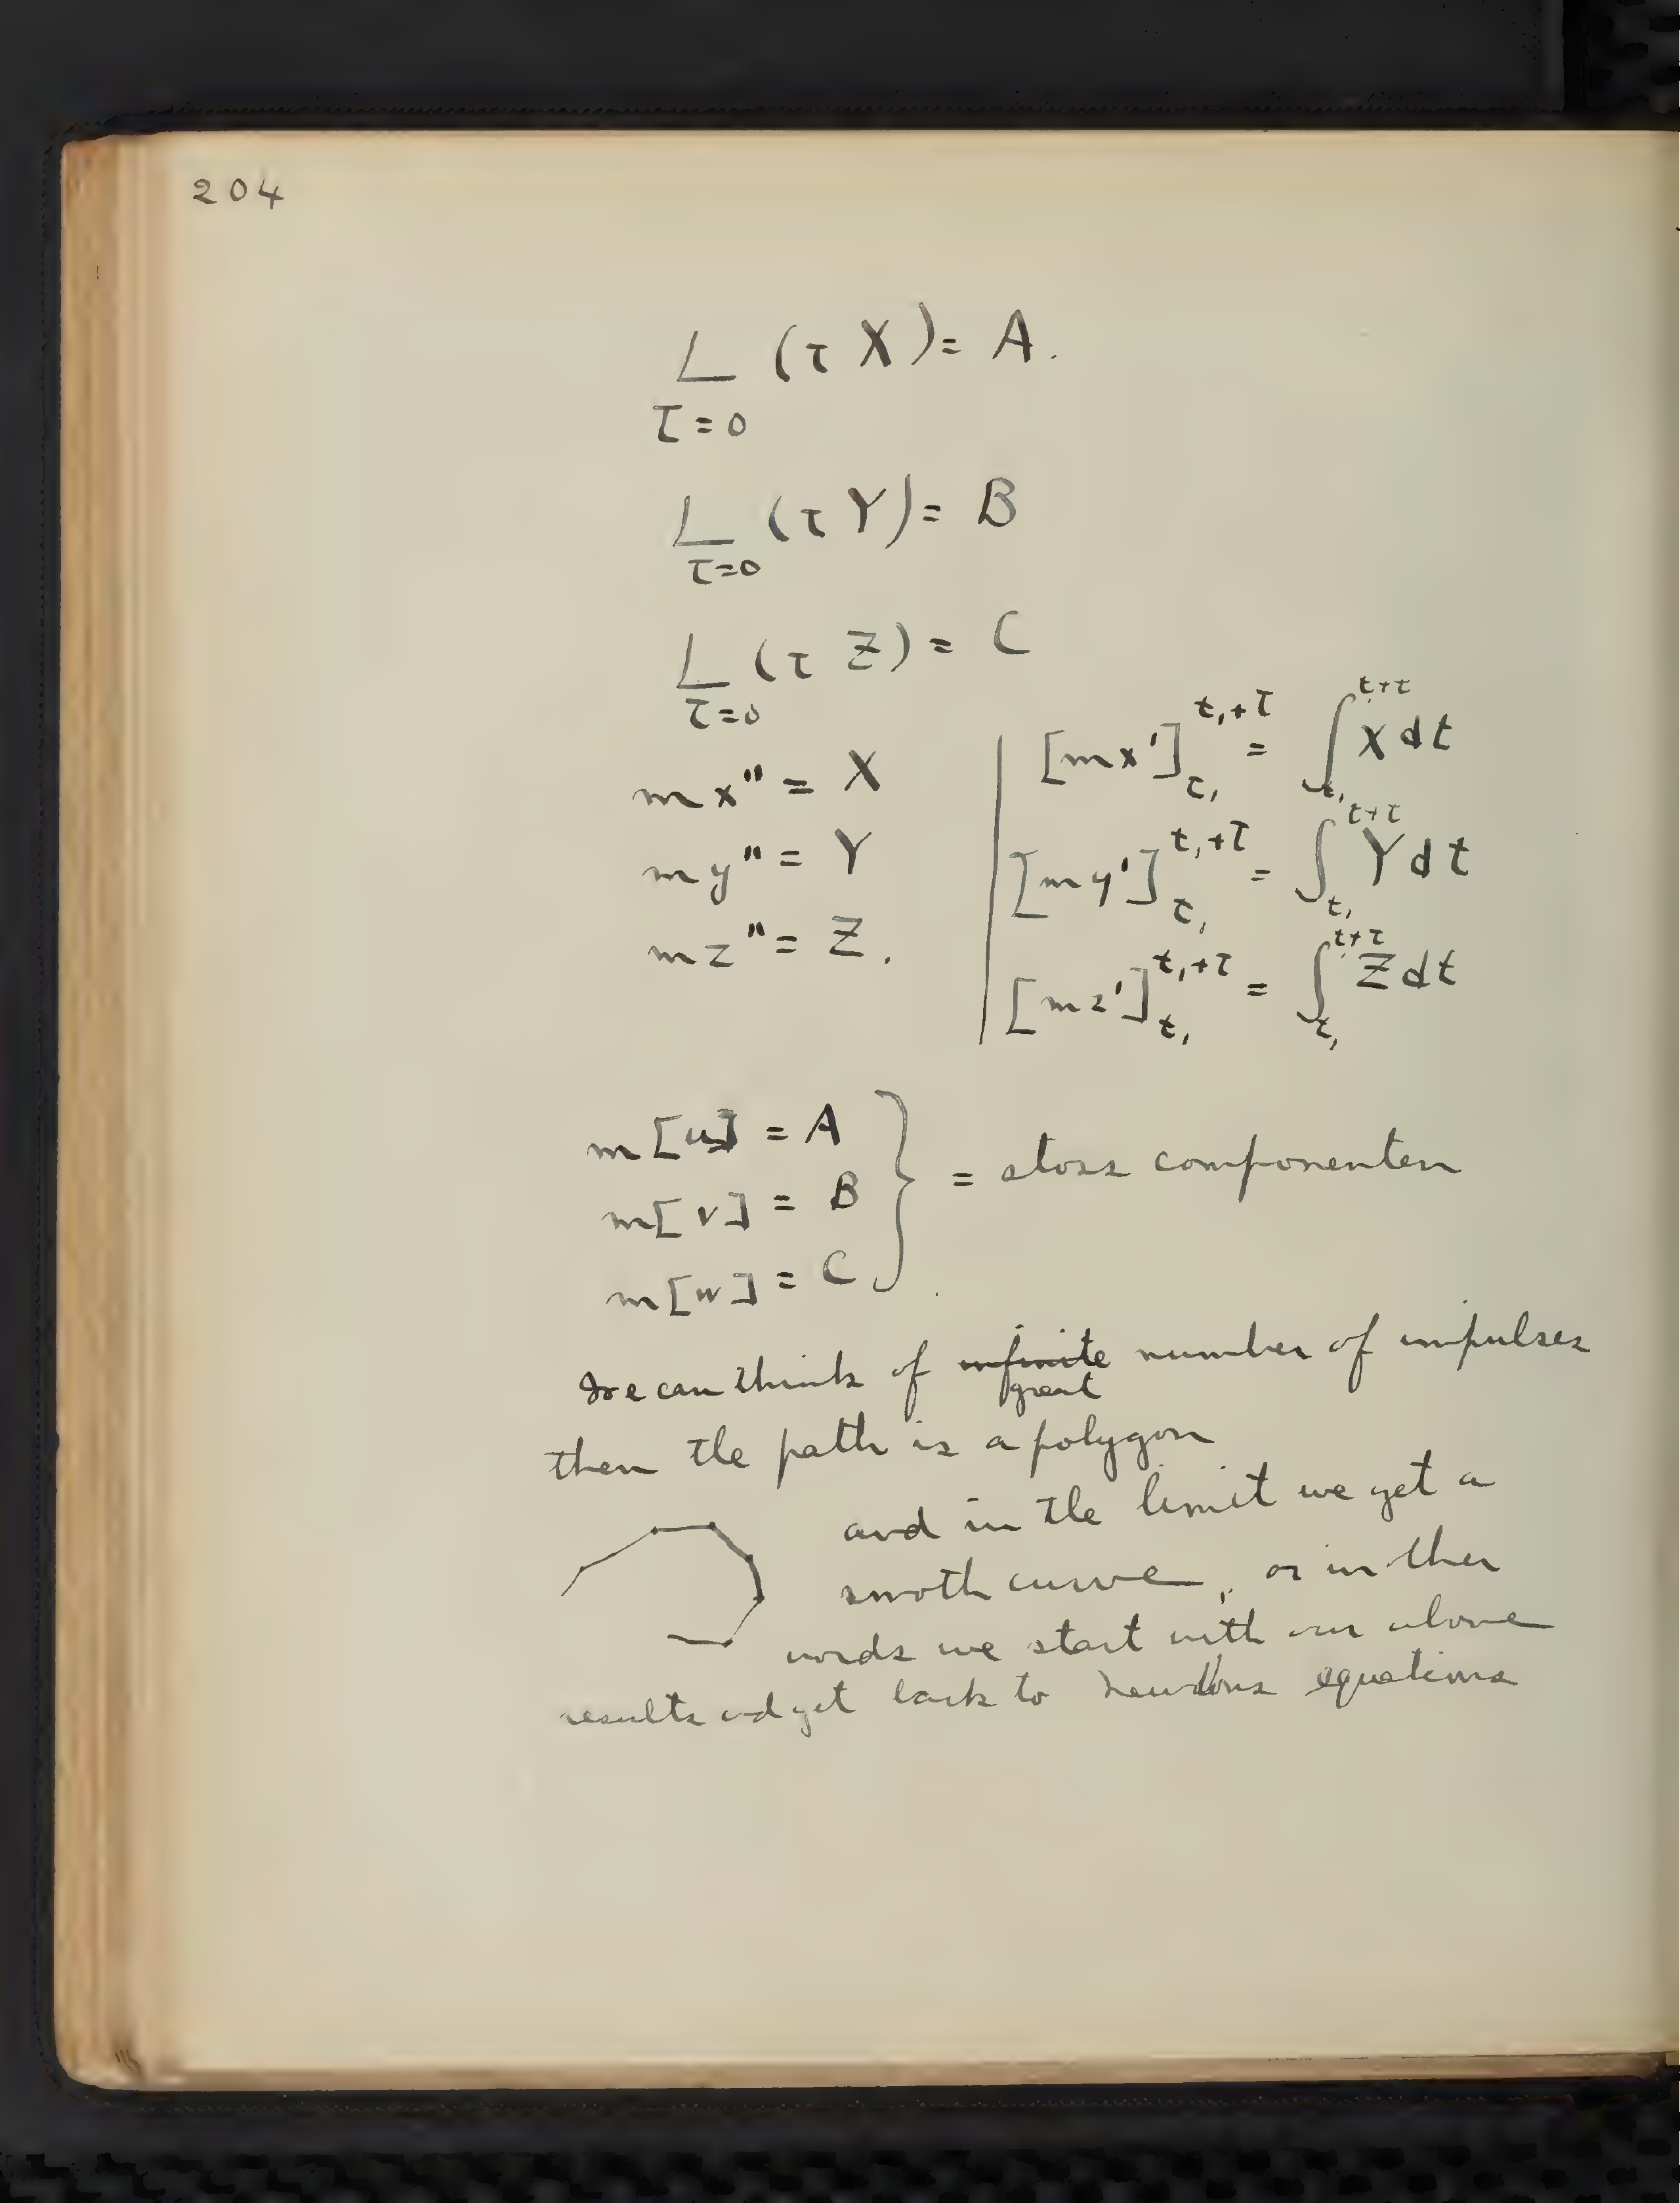 204
L (τ X) = A.
τ=0
L (τ Y) = B
τ=0
L (τ Z) = C
τ=0
m x" = X
m y" = Y
m z" = Z.
[m x']_{t_1}^{t_1+τ} = ∫_{t_1}^{t+τ} X dt
[m y']_{t_1}^{t_1+τ} = ∫_{t_1}^{t+τ} Y dt
[m z']_{t_1}^{t_1+τ} = ∫_{t_1}^{t+τ} Z dt
m[u] = A
m[v] = B
m[w] = C
} = stoss componenten
We can think of infinite number of impulses
great
then the path is a polygon
and in the limit we get a
smoth curve, or in other
words we start with our above
results and get back to Newtons equations